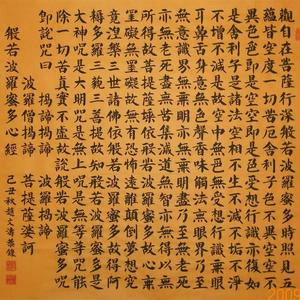 觀自在菩薩行深般若波羅蜜多時照見五
蘊皆空度一切苦厄舍利子色不異空空不
異色色即是空空即是色受想行識亦復如
是舍利子是諸法空相不生不滅不垢不淨
不增不減是故空中無色無受想行識無眼
耳鼻舌身意無色聲香味觸法無眼界乃至
無意識界無無明亦無無明盡乃至無老死
亦無老死盡無苦集滅道無智亦無得以無
所得故菩提薩埵依般若波羅蜜多故心無
罣礙無罣礙故無有恐怖遠離顛倒夢想究
竟涅槃三世諸佛依般若波羅蜜多故得阿
耨多羅三藐三菩提故知般若波羅蜜多是
大神呪是大明呪是無上呪是無等等呪能
除一切苦真實不虛故說般若波羅蜜多呪
即說呪曰
揭諦揭諦 波羅揭諦
波羅僧揭諦 菩提薩婆訶
般若波羅蜜多心經
己丑秋趙